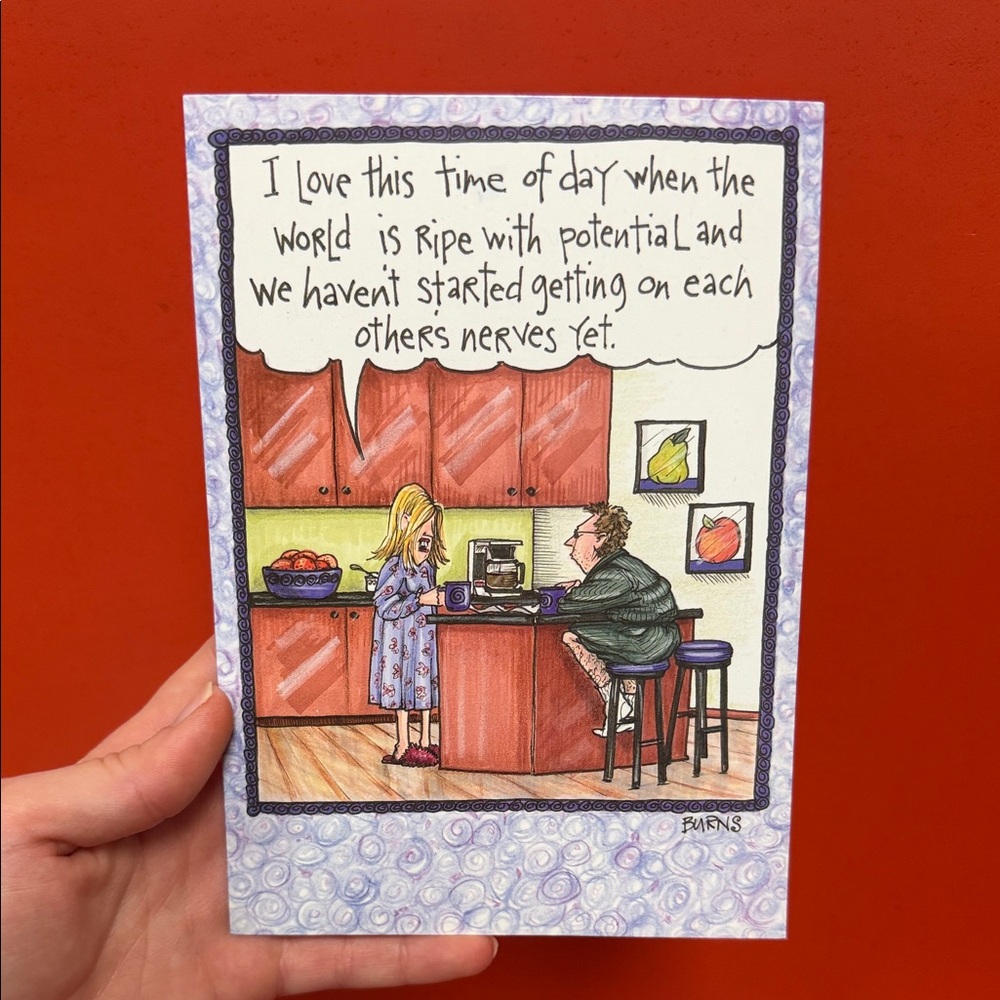 I Love this time of day when the
WORLD is Ripe with potentiaL and
we haven't staRted getting on each
others nerves Yet.
BURNS